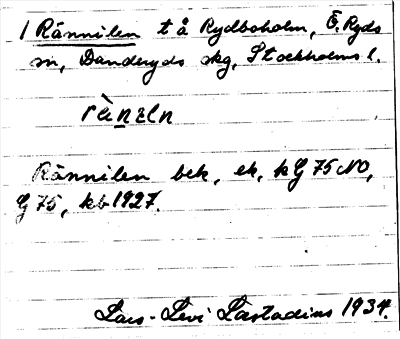 1 Rännilen t å Rydboholm, Ö. Ryds
sn, Danderyds skg, Stockholms l.
rὰnɛln
Rännilen bek, ek, kG 75 NO,
G 75, kb 1927.
Lars-Levi Læstadius 1934.